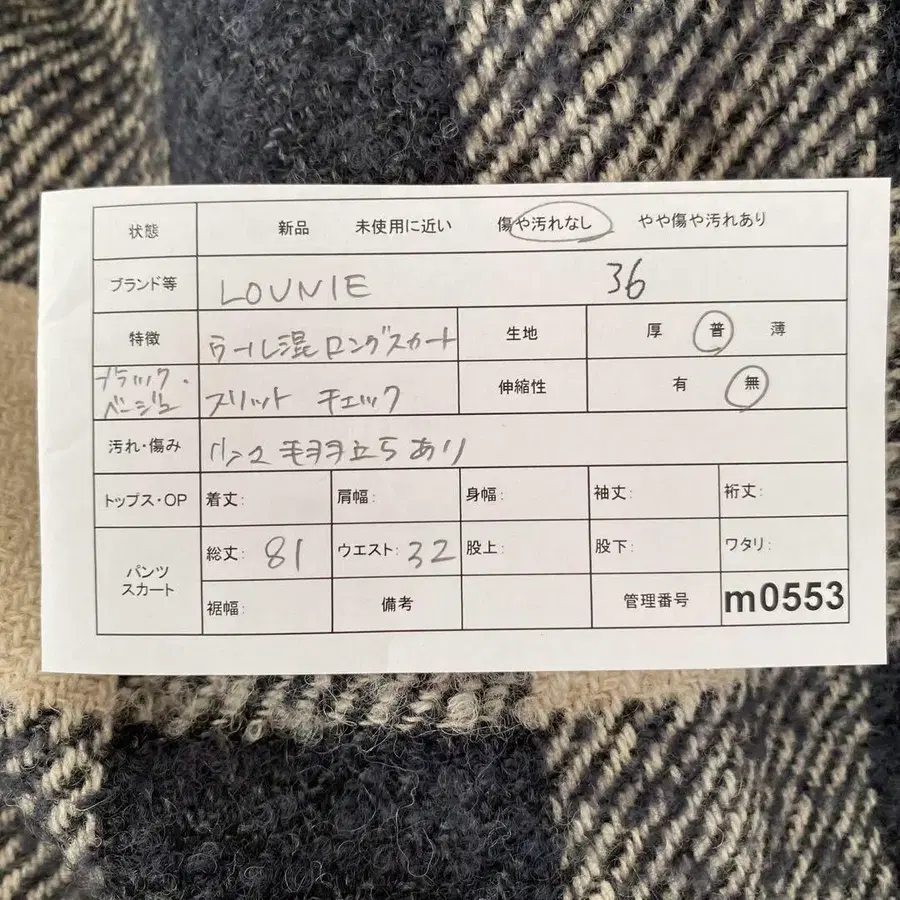 状態 新品 未使用に近い 傷や汚れなし やや傷や汚れあり
ブランド等 LOUNIE 36
特徴 ウール混ロングスカート 生地 厚 普 薄
ブラック・ベージュ スリット チェック 伸縮性 有 無
汚れ・傷み 毛羽立ちあり
トップス・OP 着丈: 肩幅: 身幅: 袖丈: 裄丈:
パンツ スカート 総丈: 81 ウエスト: 32 股上: 股下: ワタリ:
裾幅: 備考 管理番号 m0553